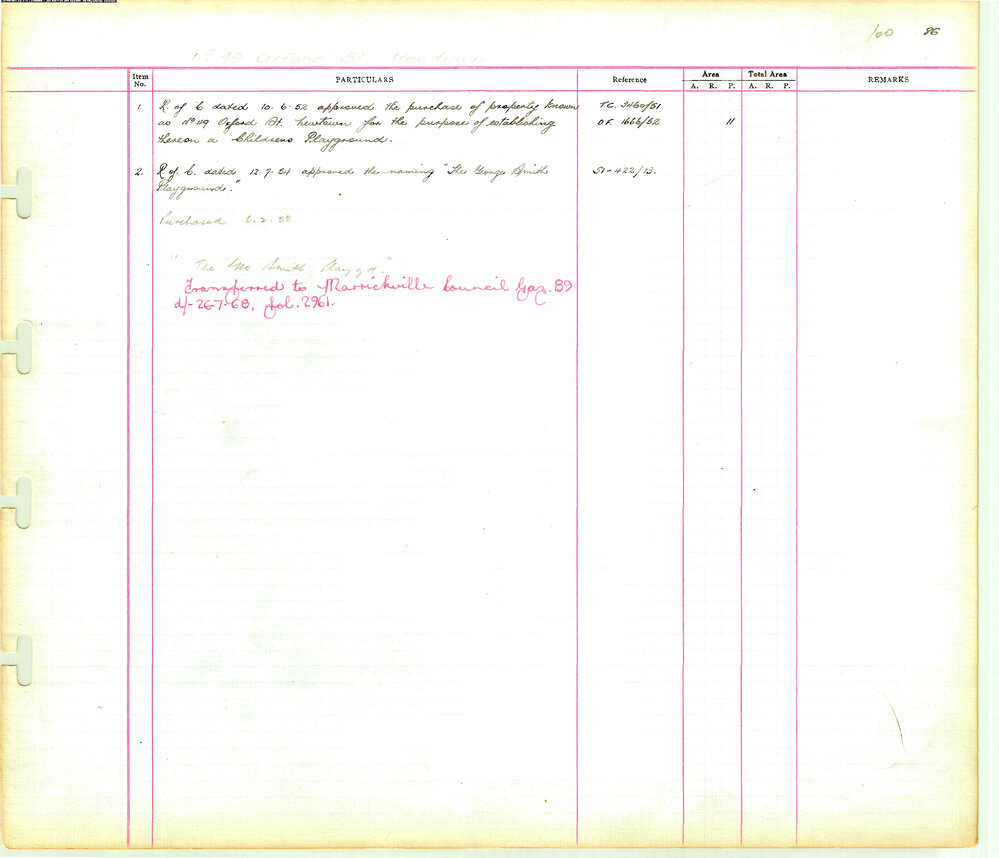 100 86
No 49 Oxford St Newtown
Item No. PARTICULARS Reference Area A. R. P. Total Area A. R. P. REMARKS
1. R. of C dated 10.6.52 approved the purchase of property known T.C. 3460/51
as No 49 Oxford St. Newtown for the purpose of establishing O.F. 1666/52 11
thereon a Childrens Playground.
2. R of C. dated 12.7.54 approved the naming "The George Smith 51-422/13.
Playground."
Purchased 6.2.53
"The Geo Smith Playgd."
Transferred to Marrickville Council Gaz. 89
d/- 26-7-68, fol. 2961.